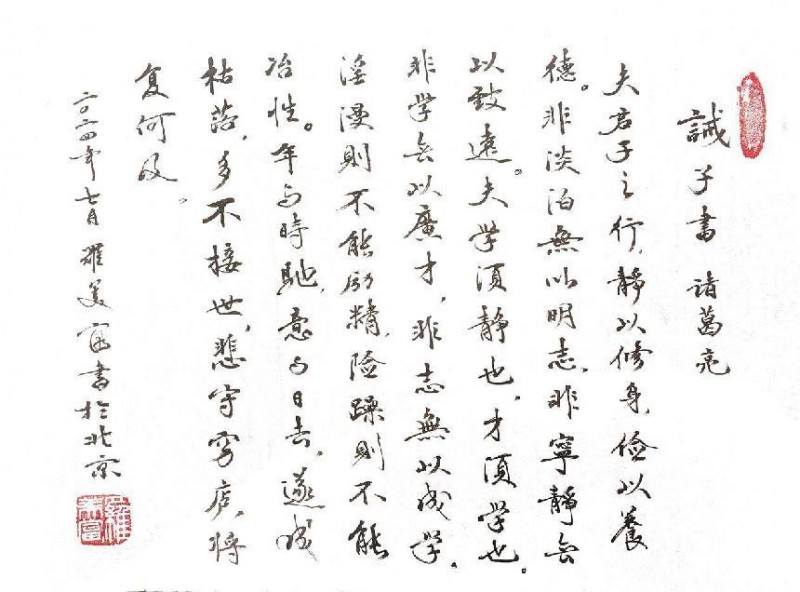 誡子書 諸葛亮
夫君子之行,静以修身,俭以養
德。非淡泊無以明志,非寧静无
以致遠。夫学須静也,才須学也。
非学无以廣才,非志無以成学。
淫漫則不能励精,险躁則不能
冶性。年与時馳,意与日去,遂成
枯落,多不接世,悲守穷庐,将
复何及。
年七月 羅美富書於北京